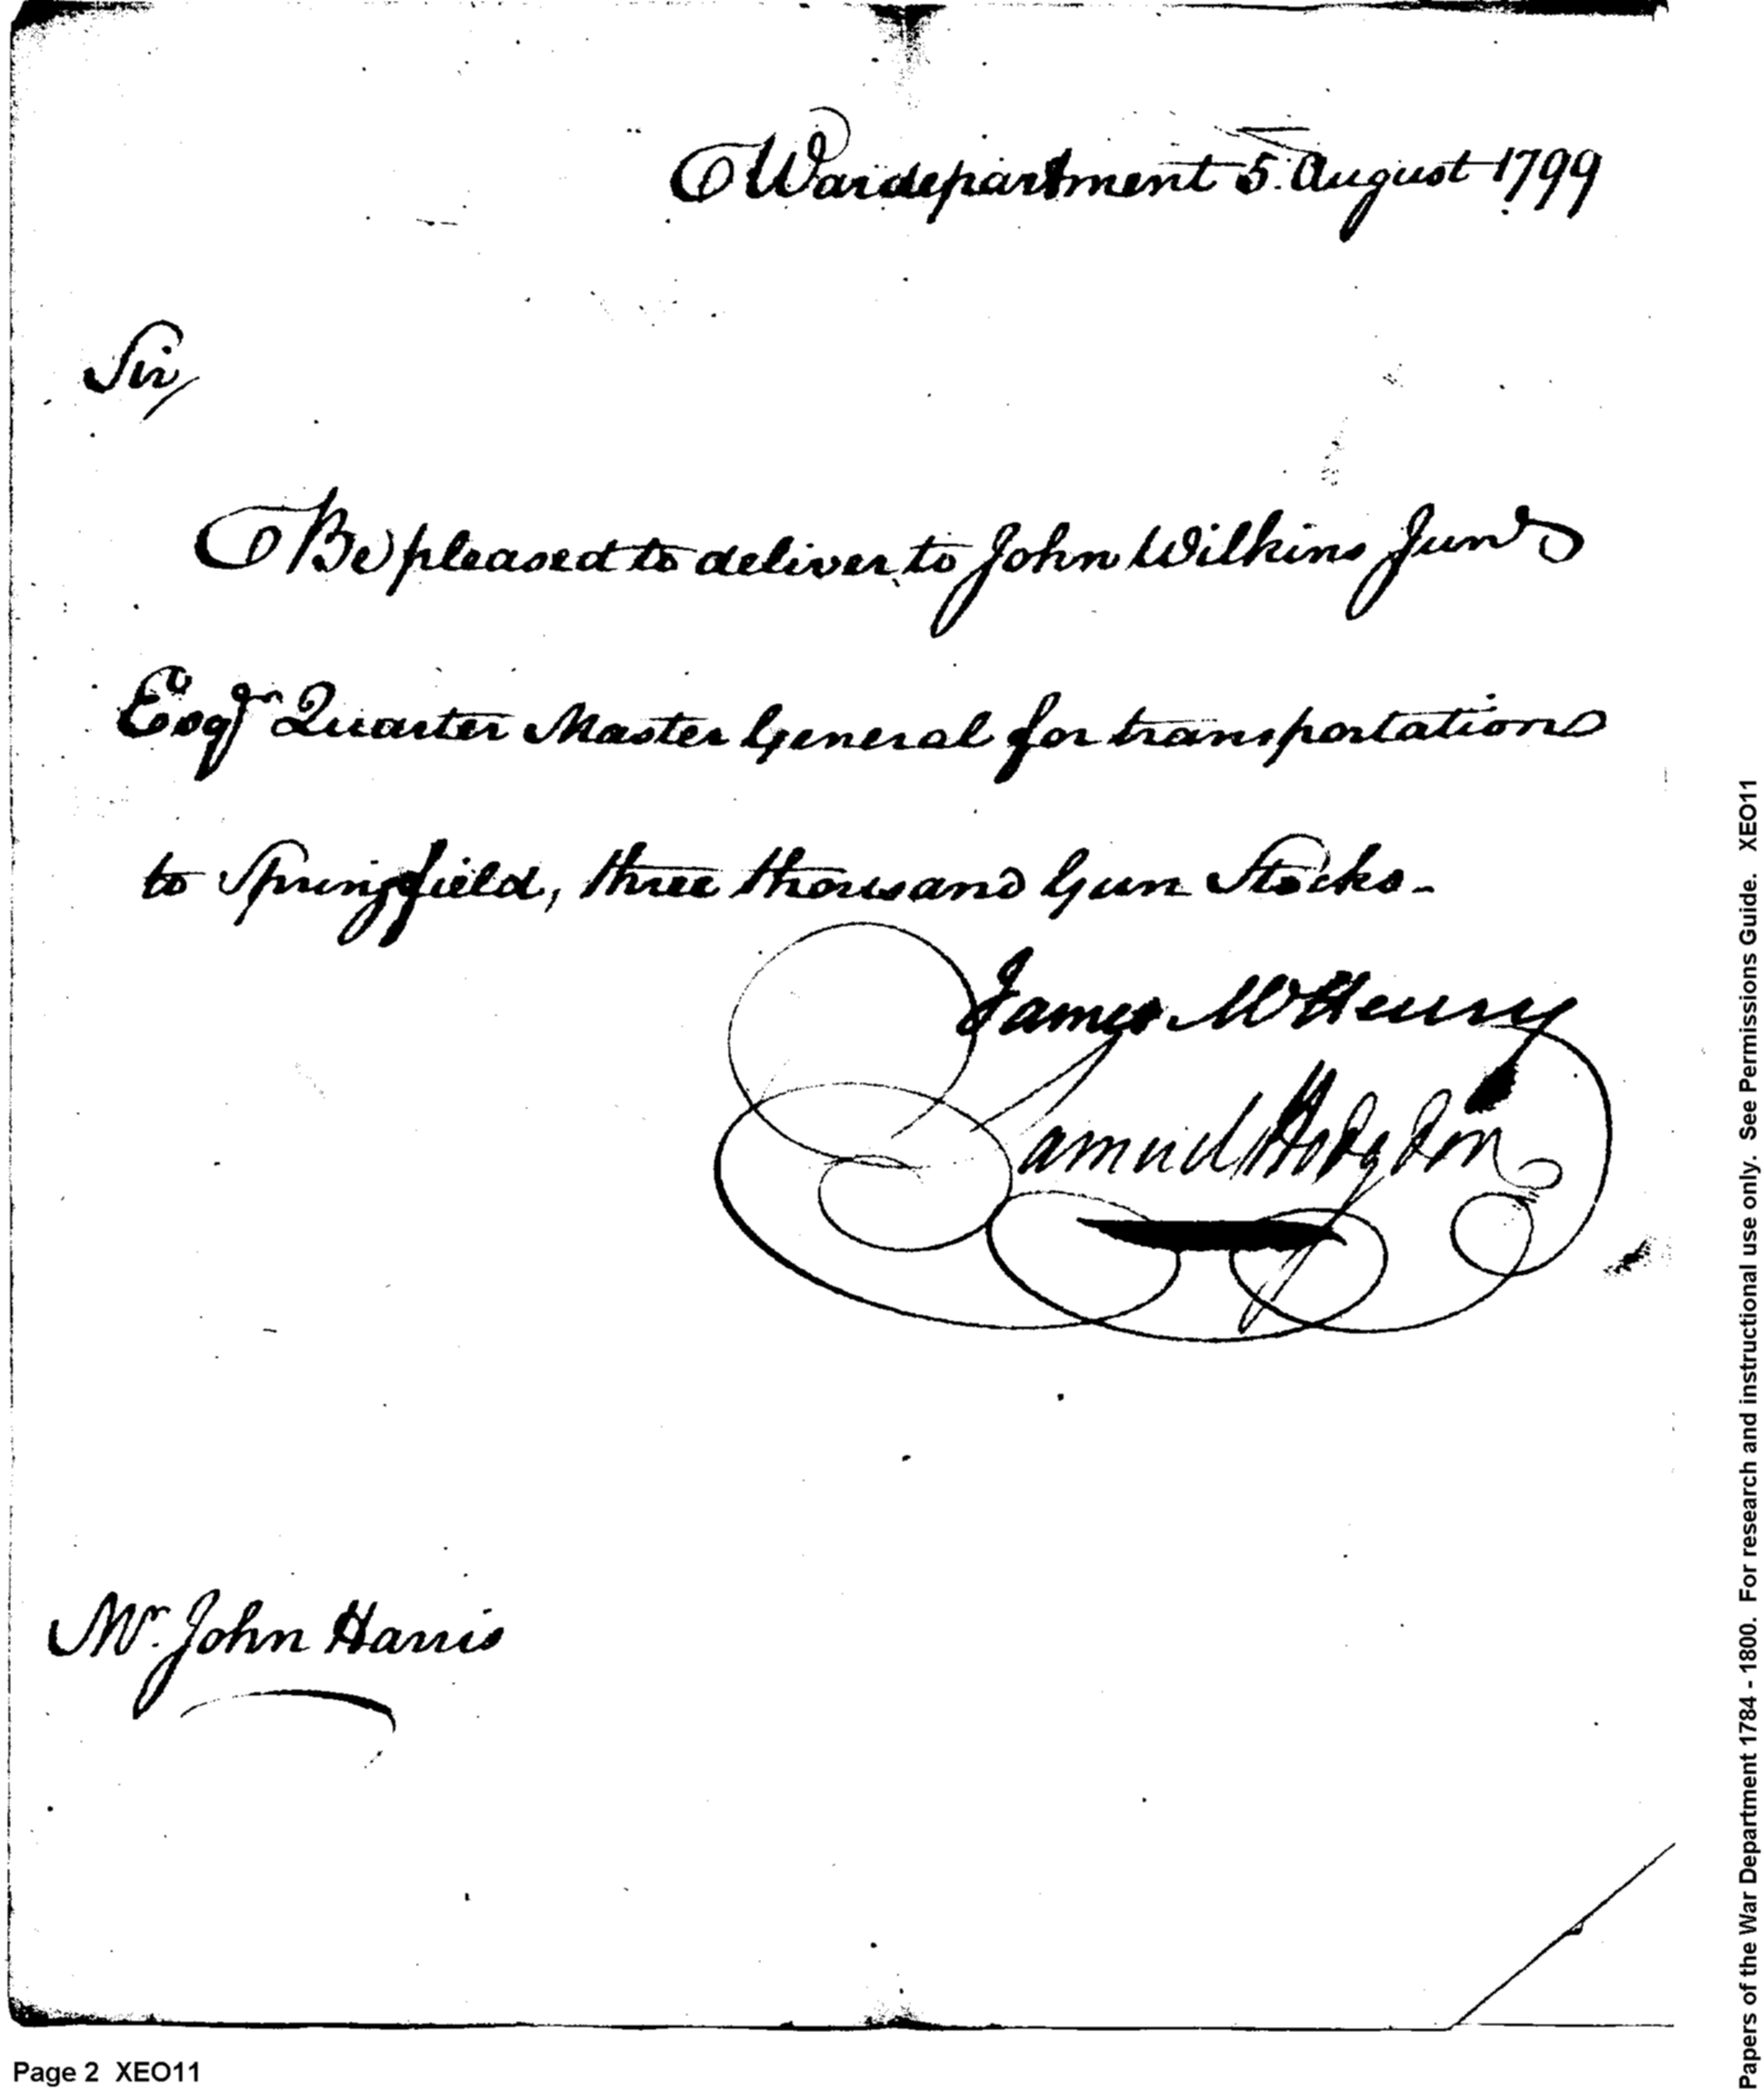 War department 5. August 1799
Sir,
Be pleased to deliver to John Wilkins Junr
Esqr Quarter Master General for transportation
to Springfield, three thousand Gun Stocks-
James McHenry
Samuel Hodgdon
Mr. John Harris
Page 2 XEO11
Papers of the War Department 1784 - 1800. For research and instructional use only. See Permissions Guide. XEO11